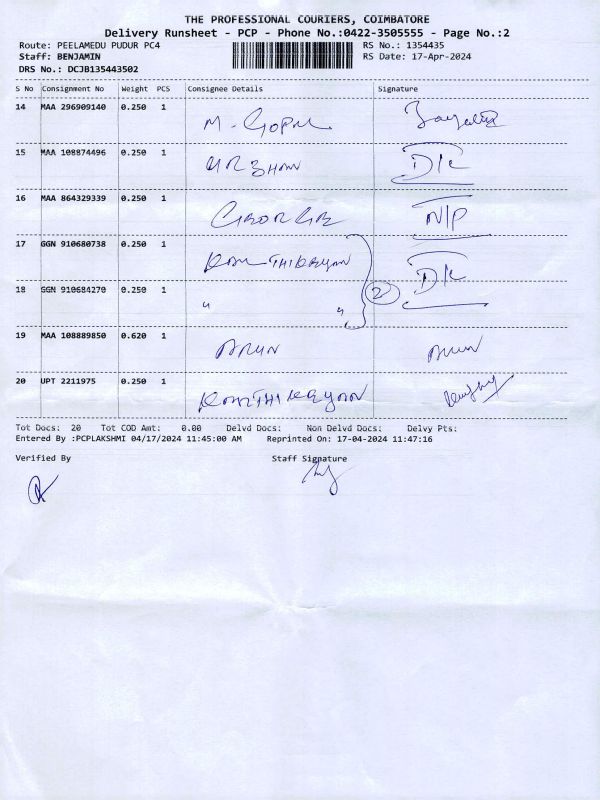 THE PROFESSIONAL COURIERS, COIMBATORE
Delivery Runsheet - PCP - Phone No.:0422-3505555 - Page No.:2
Route: PEELAMEDU PUDUR PC4 RS No.: 1354435
Staff: BENJAMIN RS Date: 17-Apr-2024
DRS No.: DCJB135443502
S No Consignment No Weight PCS Consignee Details Signature
14 MAA 296909140 0.250 1 M. GOPAL
15 MAA 108874496 0.250 1 D/L
16 MAA 864329339 0.250 1 GEORGE N/P
17 GGN 910680738 0.250 1 KARTHIKEYAN D/L
18 GGN 910684270 0.250 1 " " 2
19 MAA 108889850 0.620 1 ARUN ARUN
20 UPT 2211975 0.250 1 KARTHIKEYAN
Tot Docs: 20 Tot COD Amt: 0.00 Delvd Docs: Non Delvd Docs: Delvy Pts:
Entered By :PCPLAKSHMI 04/17/2024 11:45:00 AM Reprinted On: 17-04-2024 11:47:16
Verified By Staff Signature